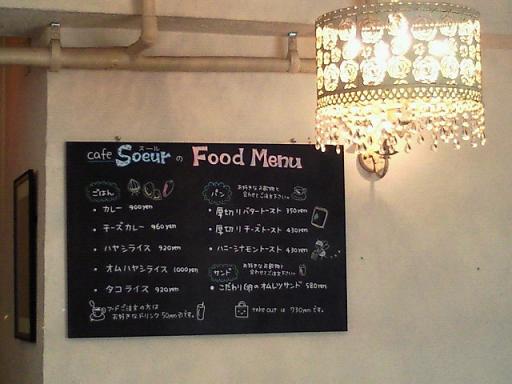 cafe Soeur スール の Food Menu
ごはん
・カレー 900yen
・チーズカレー 960yen
・ハヤシライス 920yen
・オムハヤシライス 1000yen
・タコライス 920yen
フードご注文の方は
お好きなドリンク50yen引です。
パン
お好きなお飲物と
合わせてご注文下さい
・厚切りバタートースト 350yen
・厚切りチーズトースト 430yen
・ハニーシナモントースト 430yen
サンド
お好きなお飲物と
合わせてご注文下さい
・こだわり卵のオムレツサンド 580yen
take out は 730yen です。